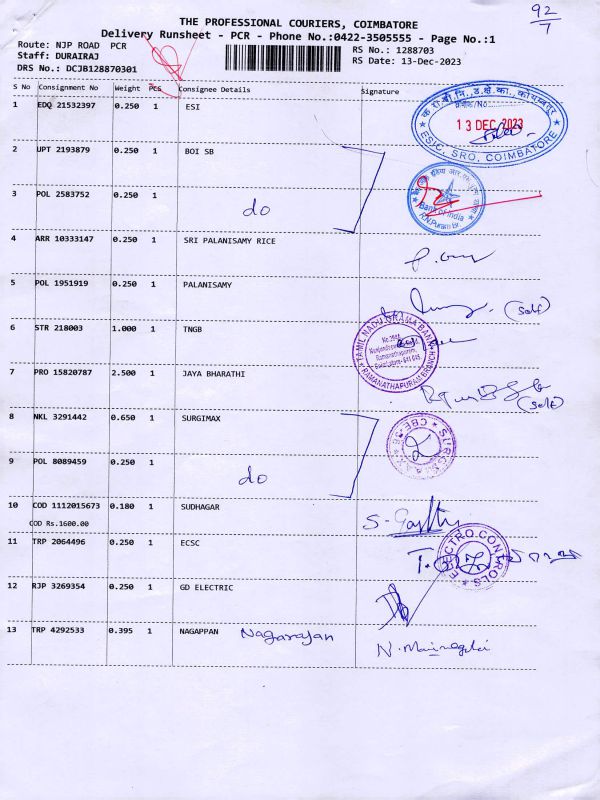 92
7
THE PROFESSIONAL COURIERS, COIMBATORE
Delivery Runsheet - PCR - Phone No.:0422-3505555 - Page No.:1
Route: NJP ROAD PCR
RS No.: 1288703
Staff: DURAIRAJ
RS Date: 13-Dec-2023
DRS No.: DCJB128870301
S No Consignment No Weight PCS Consignee Details Signature
1 EDQ 21532397 0.250 1 ESI
13 DEC 2023
ESIC, SRO, COIMBATORE
2 UPT 2193879 0.250 1 BOI SB
3 POL 2583752 0.250 1 do
Bank of India
R.N.Puram Br.
4 ARR 10333147 0.250 1 SRI PALANISAMY RICE
5 POL 1951919 0.250 1 PALANISAMY
(self)
6 STR 218003 1.000 1 TNGB
TAMIL NADU GRAMA BANK
Ramanathapuram,
Coimbatore - 641 045
RAMANATHAPURAM BRANCH
7 PRO 15820787 2.500 1 JAYA BHARATHI
(self)
8 NKL 3291442 0.650 1 SURGIMAX
SURGIMAX
9 POL 8089459 0.250 1 do
10 COD 1112015673 0.180 1 SUDHAGAR
COD Rs.1600.00
11 TRP 2064496 0.250 1 ECSC
ELECTRO CONTROLS
12 RJP 3269354 0.250 1 GD ELECTRIC
13 TRP 4292533 0.395 1 NAGAPPAN Nagarajan